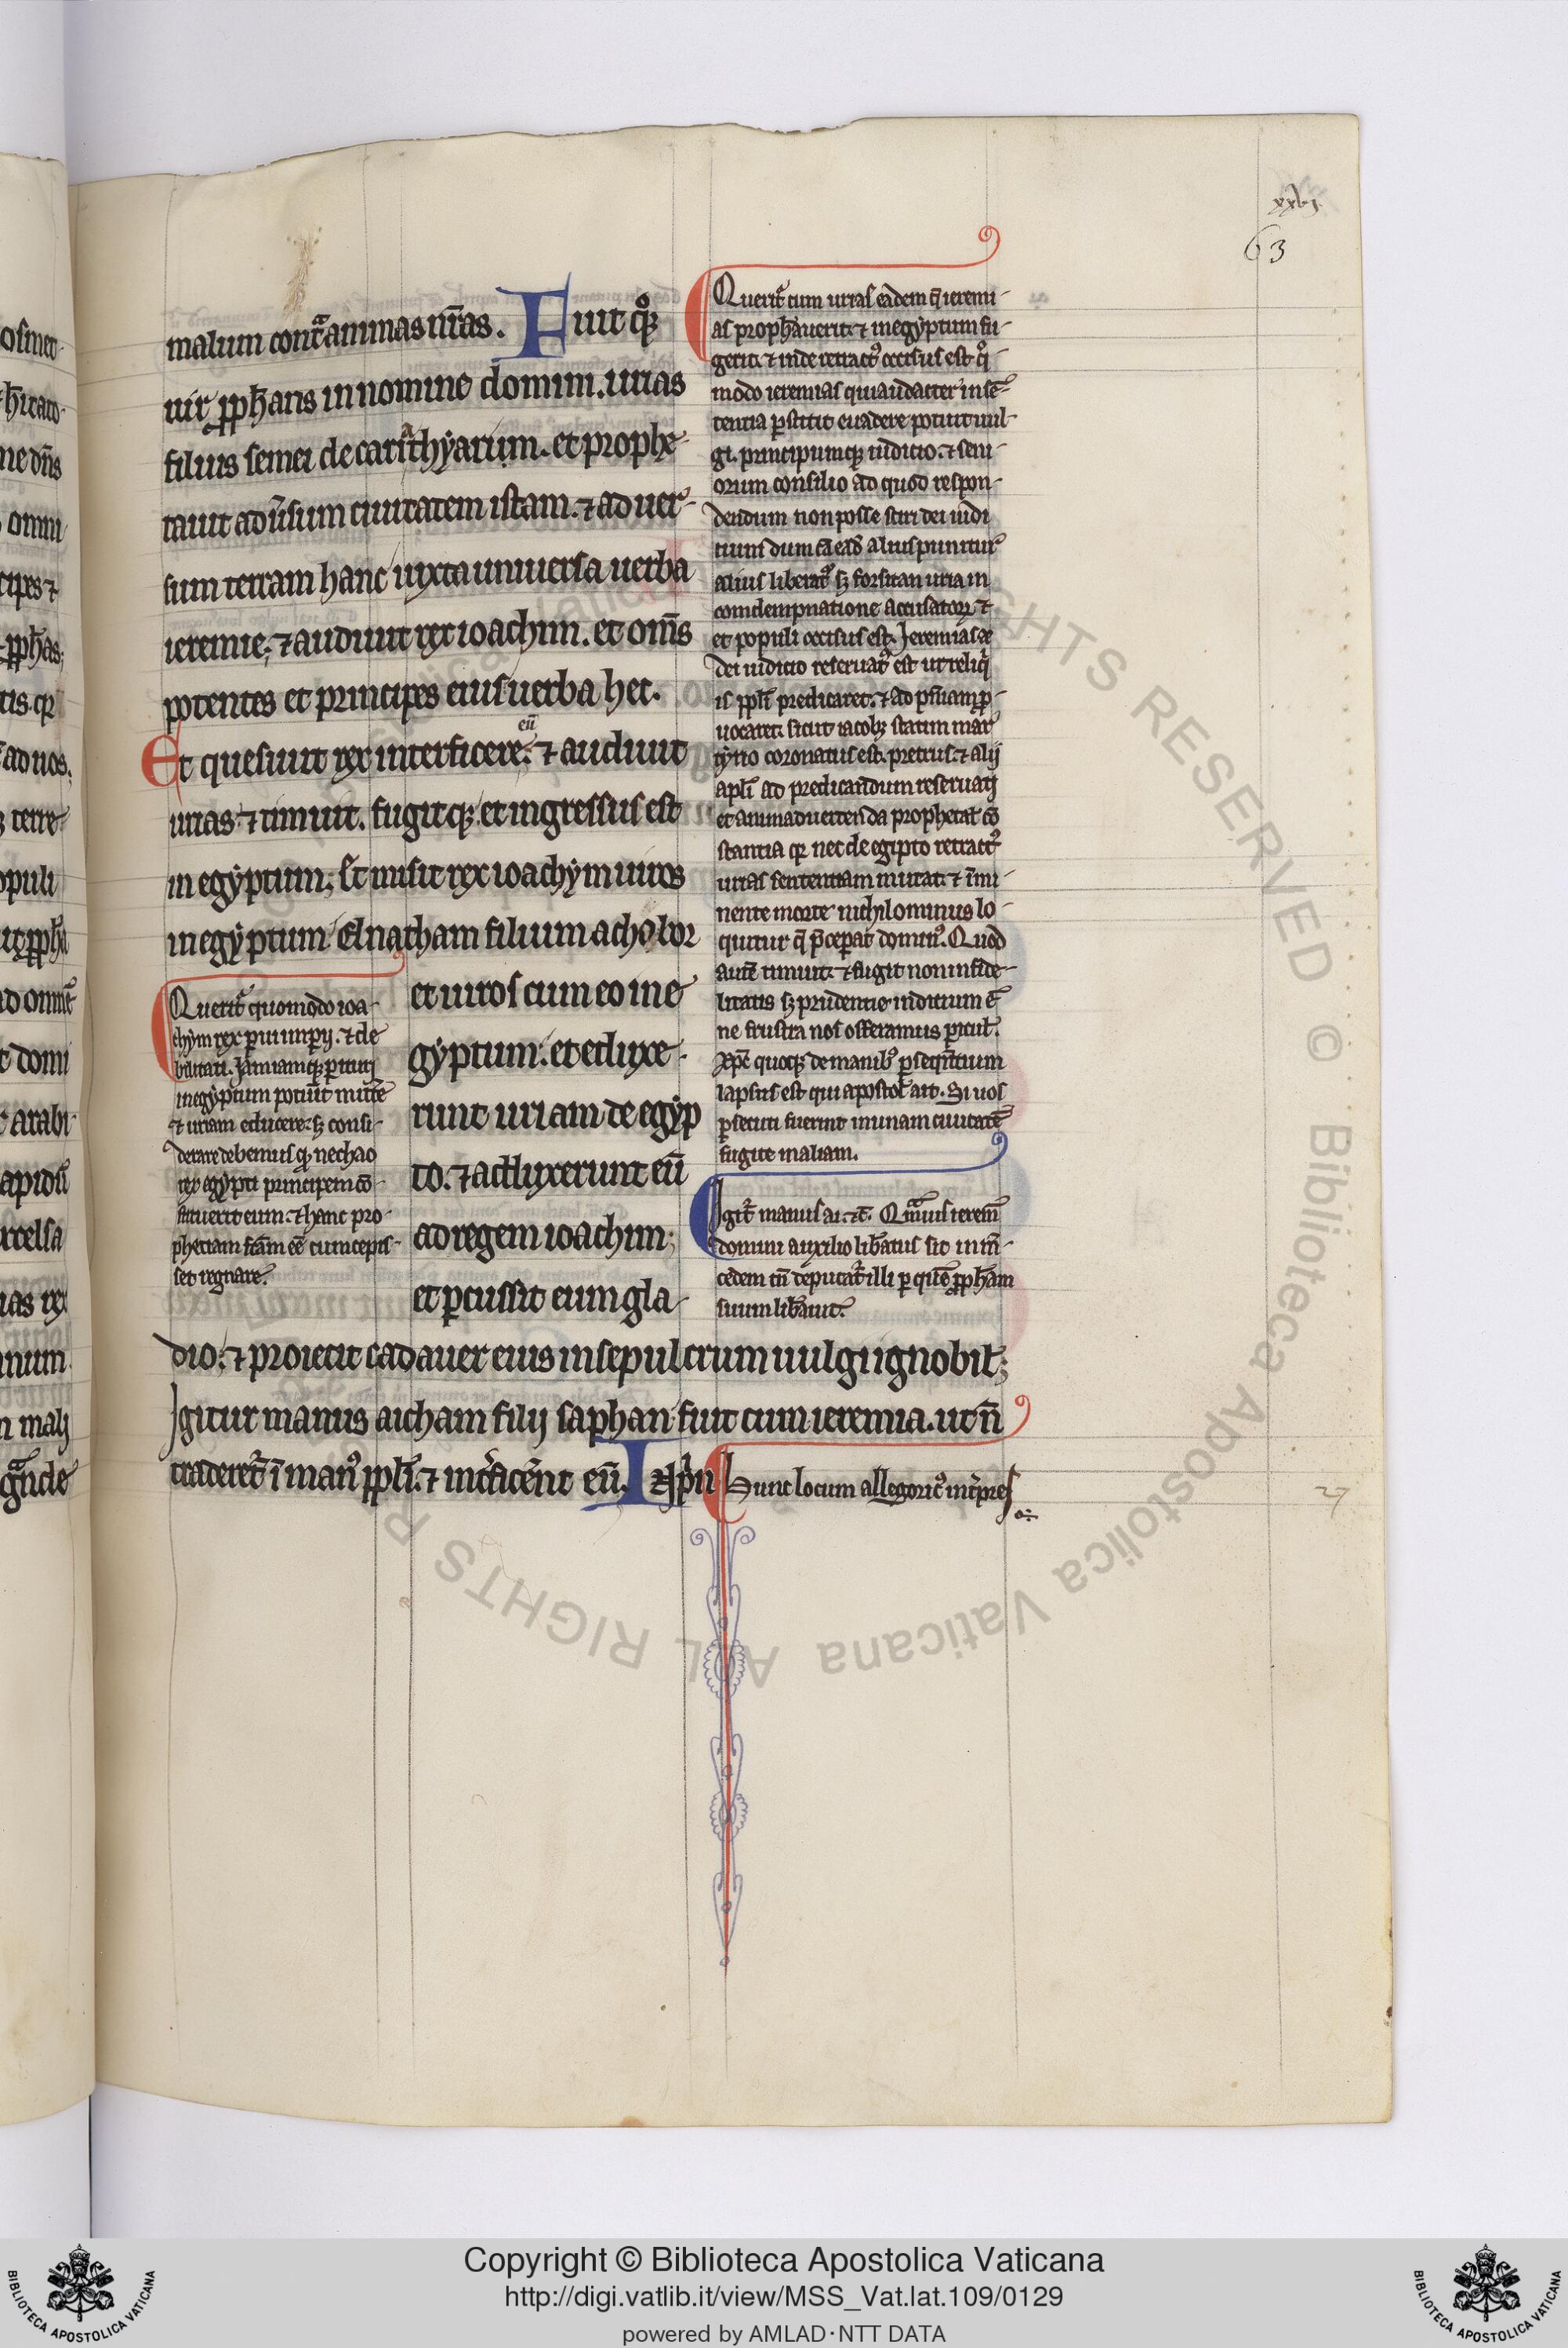 xxvj
63
malum contͣ animas nr̄as. Fuit qͦꝫ
uir ꝓph̄ans in nomine domini. urias
filius semei de cariͣthyarim. et prophe-
tauit adūsum ciuitatem istam. ⁊ aduer-
sum terram hanc iuxta uniuersa uerba
ieremie; ⁊ audiuit rex ioachim. et om̄s
potentes et principes eius uerba hec.
Et quesiuit rex interficere eū. ⁊ audiuit
urias ⁊ timuit. fugitqꝫ et ingressus est
in egyptum; Et misit rex ioachym uiros
in egyptum Elnatham filium achobor
et uiros cum eo in e
gyptum. et eduxe-
runt uriam de egyp
to. ⁊ adduxerunt eū
ad regem ioachim;
et ꝑcussit eum gla-
dio; ⁊ proiecit cadauer eius in sepulcrum uulgi ignobil̄;
Igitur manus aicham filij saphan fuit cum ieremia. ut n̄
traderet᷑ ī manꝰ ppl̄i. ⁊ int᷑ficēnt eū. In pͥn
Querit᷑ quomodo ioa-
chym rex ꝑui imꝑij. ⁊ de
bilitati. iamiamqꝫ ꝑituri
in egyptum potuīt mitte᷑
⁊ uriam educere. sꝫ consi-
derare debemus qꝫ nechao
rex egypti principem cō-
stituerit eum. ⁊ hanc pro-
phetiam fc̄am eē cum cepis-
set regnare.
Querit᷑ cum urias eadem q̄ ieremi-
as proph̄auerit. ⁊ in egyptum fu-
gerit. ⁊ inde retractꝰ occisus est. qͦ
modo ieremias qui audacter in sē-
tentia ꝑstitit euadere potuit uul-
gi. principumqꝫ iudicio. ⁊ seni-
orum consilio ad quod respon-
dendum non posse sciri dei iudi
cium dum cā eād̄ alius punitur
alius liberat᷑ sꝫ forsitan uria in
comdempnatione accusatorꝝ ⁊
et populi occisus est. Ieremias
dei iudicio reseruatꝰ est ut reliqͥ
is ppl̄i predicaret. ⁊ ad pn̄iam ꝓ-
uocaret. sicut iacobꝫ statim mar
tyrio coronatus est. pretrus. ⁊ alij
apl̄i ad predicandum reseruati
et animaduertenda prophetaꝝ cō
stantia qꝫ nec de egipto retractꝰ
urias sententiam mutat. ⁊ īmi-
nente morte nichilominus lo-
quitur q̄ p̄ceꝑat dominꝰ. Quod
autē timuit. ⁊ fugit non infide-
litatis sꝫ prudentie indicium ē
ne frustra nos offeramus ꝑicul̄.
Xp̄c quoqꝫ de manibꝰ ꝑseqn̄tium
lapsus est qui apostol̄ ait. Si uos
ꝑsecuti fuerint in unam ciuitatē
fugite in aliam.
Igit᷑ manus ai. ⁊c̄. Qͣmuis ierem̄
domini auxilio lib̄atus sit in m̄-
cedem tn̄ deputat᷑ illi ꝑ quē ꝓph̄am
suum lib̄auit.
Hunc locum allegoricꝰ int᷑pres
27
Copyright © Biblioteca Apostolica Vaticana
http://digi.vatlib.it/view/MSS_Vat.lat.109/0129
powered by AMLAD·NTT DATA